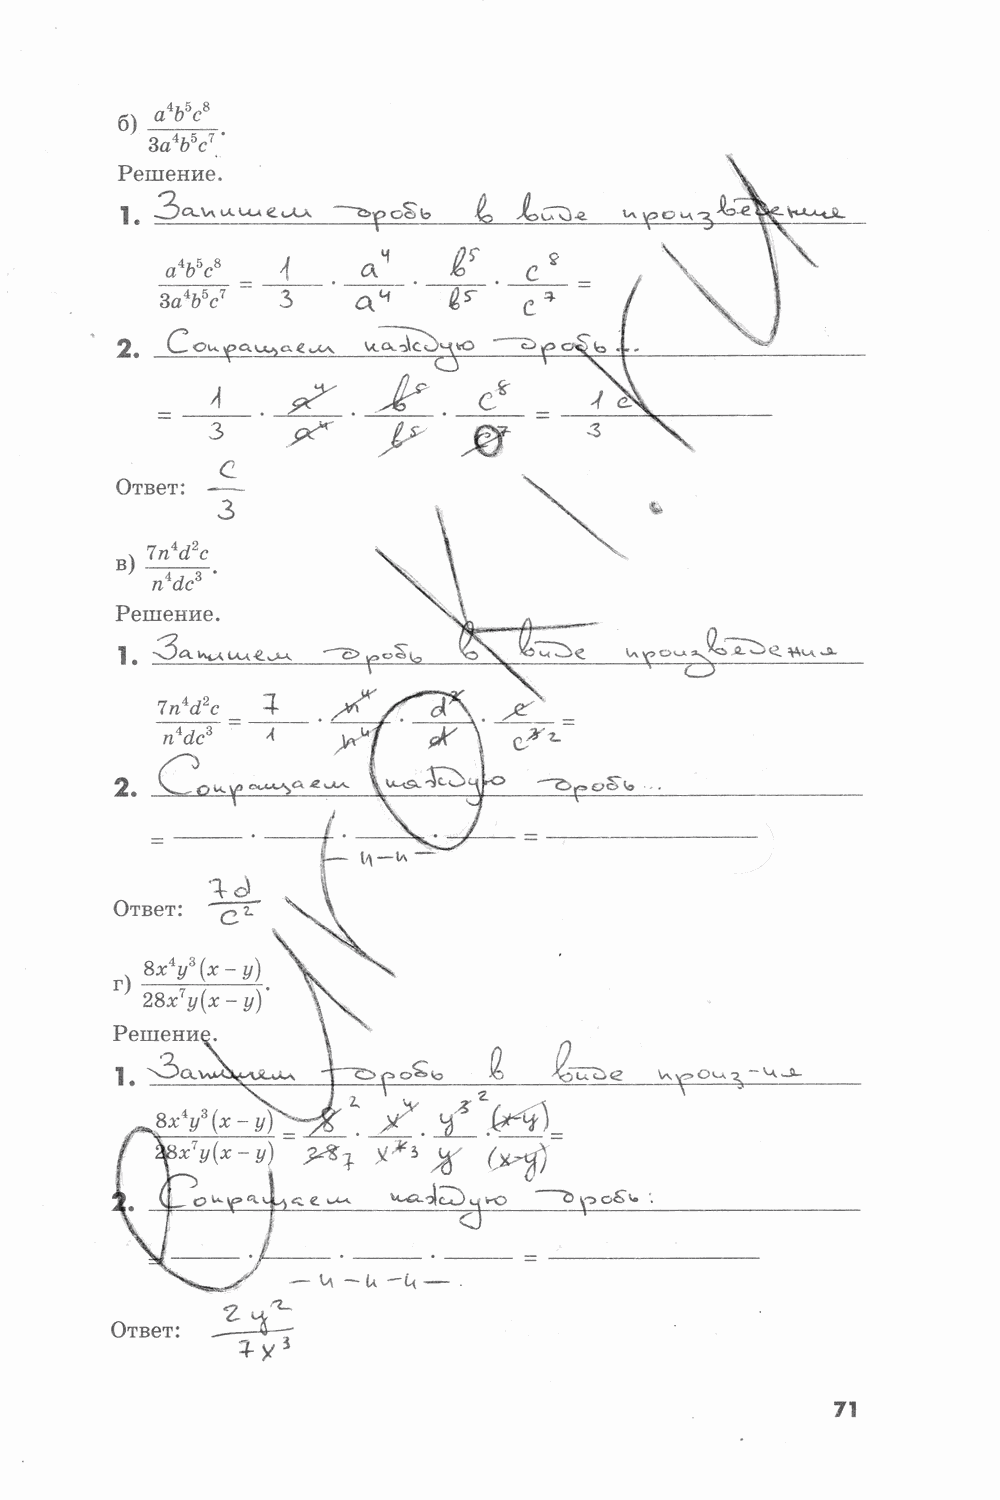 б) a⁴b⁵c⁸ / 3a⁴b⁵c⁷.
Решение.
1. Запишем дробь в виде произведение
a⁴b⁵c⁸ / 3a⁴b⁵c⁷ = 1/3 · a⁴/a⁴ · b⁵/b⁵ · c⁸/c⁷ =
2. Сокращаем каждую дробь...
= 1/3 · a⁴/a⁴ · b⁵/b⁵ · c⁸/c⁷ = 1 c/3
Ответ: c/3
в) 7n⁴d²c / n⁴dc³.
Решение.
1. Запишем дробь в виде произведения
7n⁴d²c / n⁴dc³ = 7/1 · n⁴/n⁴ · d²/d · c/c³ 2 =
2. Сокращаем каждую дробь...
= · · · =
— и — и —
Ответ: 7d/c²
г) 8x⁴y³(x – y) / 28x⁷y(x – y).
Решение.
1. Запишем дробь в виде произ-ия
8x⁴y³(x – y) / 28x⁷y(x – y) = 8 2/28 7 · x⁴/x⁷ 3 · y³ 2/y · (x-y)/(x-y) =
2. Сокращаем каждую дробь:
= · · · =
— и — и — и — .
Ответ: 2y²/7x³
71